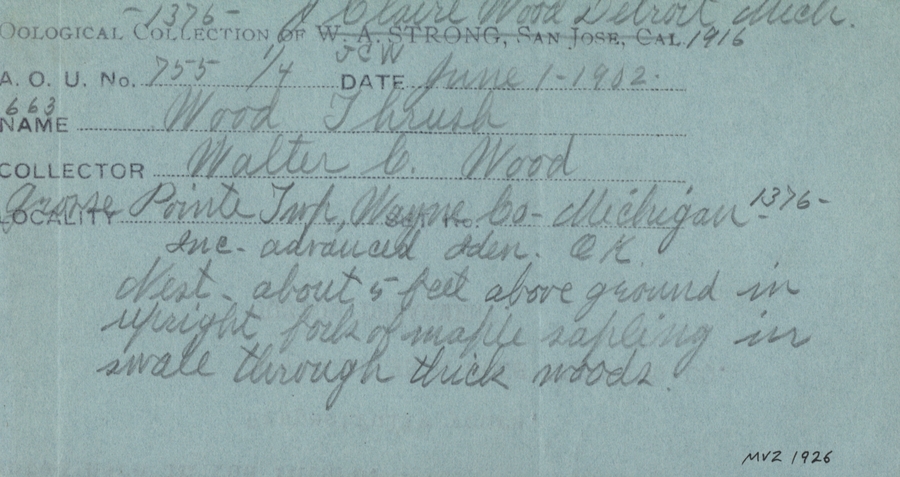 -1376- J Claire Wood Detroit, Mich.
OOLOGICAL COLLECTION OF W. A. STRONG, SAN JOSE, CAL. 1916
JCW
A. O. U. No. 755 1/4 DATE June 1-1902.
663
NAME Wood Thrush
COLLECTOR Walter C. Wood
LOCALITY Grosse Pointe Twp, Wayne Co- Michigan SET No. -1376-
Inc- advanced Iden. O K.
Nest- about 5 feet above ground in
upright fork of maple sapling in
swale through thick woods.
MVZ 1926